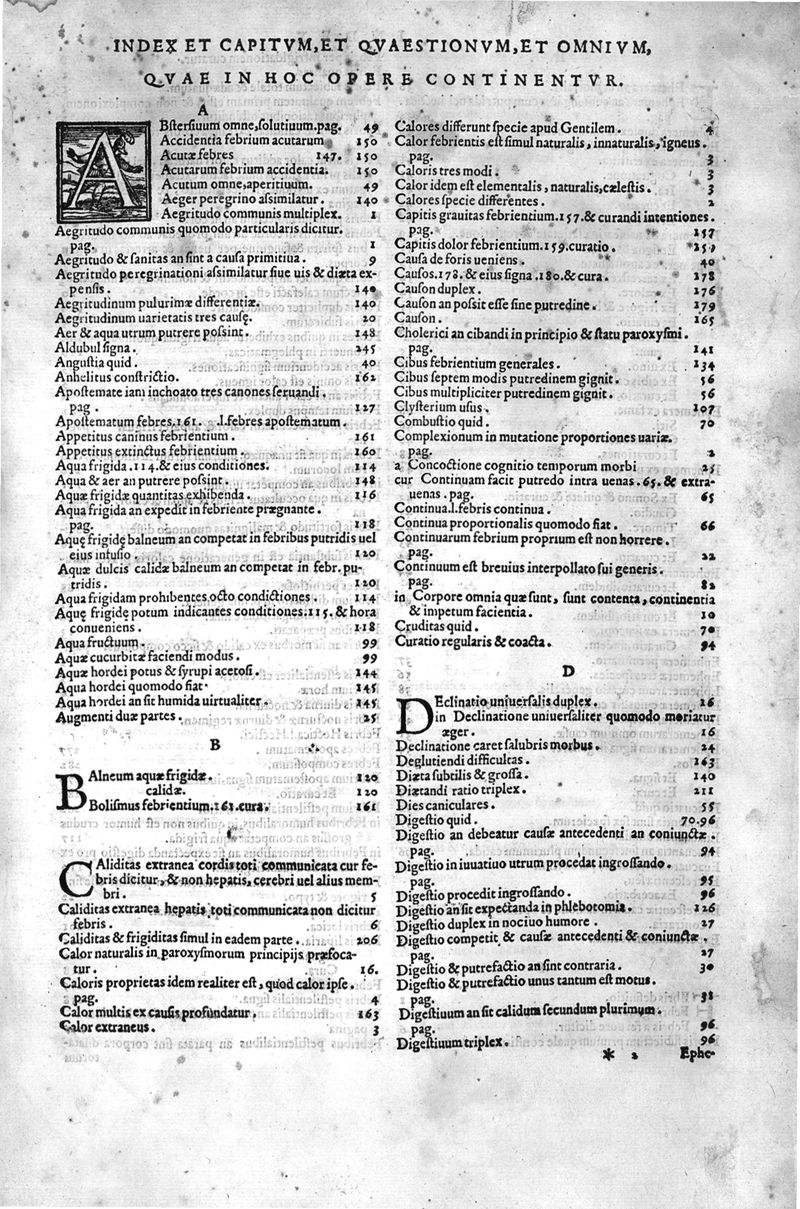 INDEX ET CAPITVM, ET QVAESTIONVM, ET OMNIVM,
QVAE IN HOC OPERE CONTINENTVR.
A
ABſterſiuum omne, ſolutiuum. pag. 49
Accidentia febrium acutarum 150
Acutæ febres 147. 150
Acutarum febrium accidentia. 150
Acutum omne, aperitiuum. 49
Aeger peregrino aſsimilatur. 140
Aegritudo communis multiplex. 1
Aegritudo communis quomodo particularis dicitur.
pag. 1
Aegritudo & ſanitas an ſint a cauſa primitiua. 9
Aegritudo peregrinationi aſsimilatur ſiue uis & diæta ex-
penſis. 140
Aegritudinum pulurimæ differentiæ. 140
Aegritudinum uarietatis tres cauſę. 20
Aer & aqua utrum putrere poſsint. 148
Aldubul ſigna. 245
Anguſtia quid. 40
Anhelitus conſtrictio. 162
Apoſtemate iam inchoato tres canones ſeruandi.
pag. 127
Apoſtematum febres. 161. .l. febres apoſtematum.
Appetitus caninus febrientium. 161
Appetitus extinctus febrientium. 160
Aqua frigida. 114. & eius conditiones. 114
Aqua & aer an putrere poſsint. 148
Aquæ frigidæ quantitas exhibenda. 116
Aqua frigida an expedit in febriente prægnante.
pag. 118
Aquę frigidę balneum an competat in febribus putridis uel
eius infuſio. 120
Aquæ dulcis calidæ balneum an competat in febr. pu-
tridis. 120
Aquam frigidam prohibentes octo condictiones. 114
Aquę frigidę potum indicantes conditiones. 115. & hora
conueniens. 118
Aqua fructuum. 99
Aquæ cucurbitæ faciendi modus. 99
Aquæ hordei potus & ſyrupi acetoſi. 144
Aqua hordei quomodo fiat. 145
Aqua hordei an ſit humida uirtualiter. 145
Augmenti duæ partes. 25
B
BAlneum aquæ frigidæ. 120
calidæ. 120
Boliſmus febrientium. 161. cura. 161
C
CAliditas extranea cordis toti communicata cur fe-
bris dicitur, & non hepatis, cerebri uel alius mem-
bri. 5
Caliditas extranea hepatis toti communicata non dicitur
febris. 6
Caliditas & frigiditas ſimul in eadem parte. 206
Calor naturalis in paroxyſmorum principijs præfoca-
tur. 16.
Caloris proprietas idem realiter eſt, quod calor ipſe.
pag. 4
Calor multis ex cauſis profundatur. 163
Calor extraneus. 3
Calores differunt ſpecie apud Gentilem. 4
Calor febrientis eſt ſimul naturalis, innaturalis, igneus.
pag. 3
Caloris tres modi. 3
Calor idem eſt elementalis, naturalis, cæleſtis. 3
Calores ſpecie differentes. 2
Capitis grauitas febrientium. 157. & curandi intentiones.
pag. 157
Capitis dolor febrientium. 159. curatio.
Cauſa de foris ueniens. 40
Cauſos. 178. & eius ſigna. 180. & cura. 178
Cauſon duplex. 176
Cauſon an poſsit eſſe ſine putredine. 179
Cauſon. 165
Cholerici an cibandi in principio & ſtatu paroxyſmi.
pag. 141
Cibus febrientium generales. 134
Cibus ſeptem modis putredinem gignit. 56
Cibus multipliciter putredinem gignit. 56
Clyſterium uſus. 107
Combuſtio quid. 70
Complexionum in mutatione proportiones uariæ.
pag. 2
a Concoctione cognitio temporum morbi 25
cur Continuam facit putredo intra uenas. 65. & extra-
uenas. pag. 65
Continua. l. febris continua.
Continua proportionalis quomodo fiat. 66
Continuarum febrium proprium eſt non horrere.
pag. 22
Continuum eſt breuius interpollato ſui generis.
pag. 82
in Corpore omnia quæ ſunt, ſunt contenta, continentia
& impetum facientia. 10
Cruditas quid. 70
Curatio regularis & coacta. 94
D
DEclinatio uniuerſalis duplex. 26
in Declinatione uniuerſaliter quomodo moriatur
æger. 16
Declinatione caret ſalubris morbus. 24
Deglutiendi difficultas. 163
Diæta ſubtilis & groſſa. 140
Diætandi ratio triplex. 211
Dies caniculares. 55
Digeſtio quid. 70. 96
Digeſtio an debeatur cauſæ antecedenti an coniunctæ.
pag. 94
Digeſtio in iuuatiuo utrum procedat ingroſſando.
pag. 95
Digeſtio procedit ingroſſando. 96
Digeſtio an ſit expectanda in phlebotomia. 126
Digeſtio duplex in nociuo humore. 27
Digeſtio competit & cauſæ antecedenti & coniunctæ.
pag. 27
Digeſtio & putrefactio an ſint contraria. 30
Digeſtio & putrefactio unus tantum eſt motus.
pag. 38
Digeſtiuum an ſit calidum ſecundum plurimum.
pag. 96
Digeſtiuum triplex. 96
* 2 Ephe-